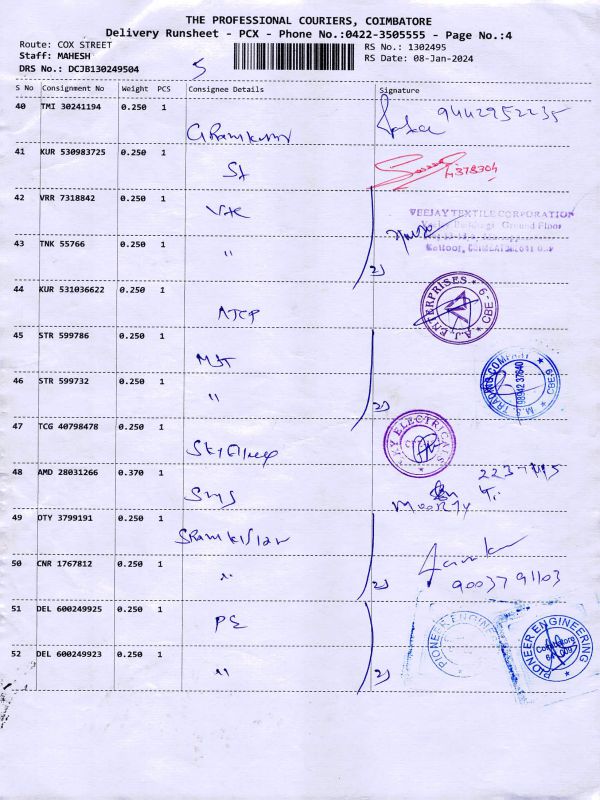 THE PROFESSIONAL COURIERS, COIMBATORE
Delivery Runsheet - PCX - Phone No.:0422-3505555 - Page No.:4
Route: COX STREET
RS No.: 1302495
Staff: MAHESH
RS Date: 08-Jan-2024
DRS No.: DCJB130249504
5
S No Consignment No Weight PCS Consignee Details Signature
40 TMI 30241194 0.250 1 9442952235
41 KUR 530983725 0.250 1
42 VRR 7318842 0.250 1
VEEJAY TEXTILE CORPORATION
Ground Floor
43 TNK 55766 0.250 1 " 2)
44 KUR 531036622 0.250 1
A.J. ENTERPRISES * CBE-9 *
45 STR 599786 0.250 1
M.S. TRADING COMPANY * CBE-9 *
46 STR 599732 0.250 1 " 2)
47 TCG 40798478 0.250 1
SKY ELECTRICALS
48 AMD 28031266 0.370 1 SMS
Moorthy
49 DTY 3799191 0.250 1
50 CNR 1767812 0.250 1 " 2) 9003791103
51 DEL 600249925 0.250 1 PE
PIONEER ENGINEERING
PIONEER ENGINEERING
Coimbatore
52 DEL 600249923 0.250 1 " 2)